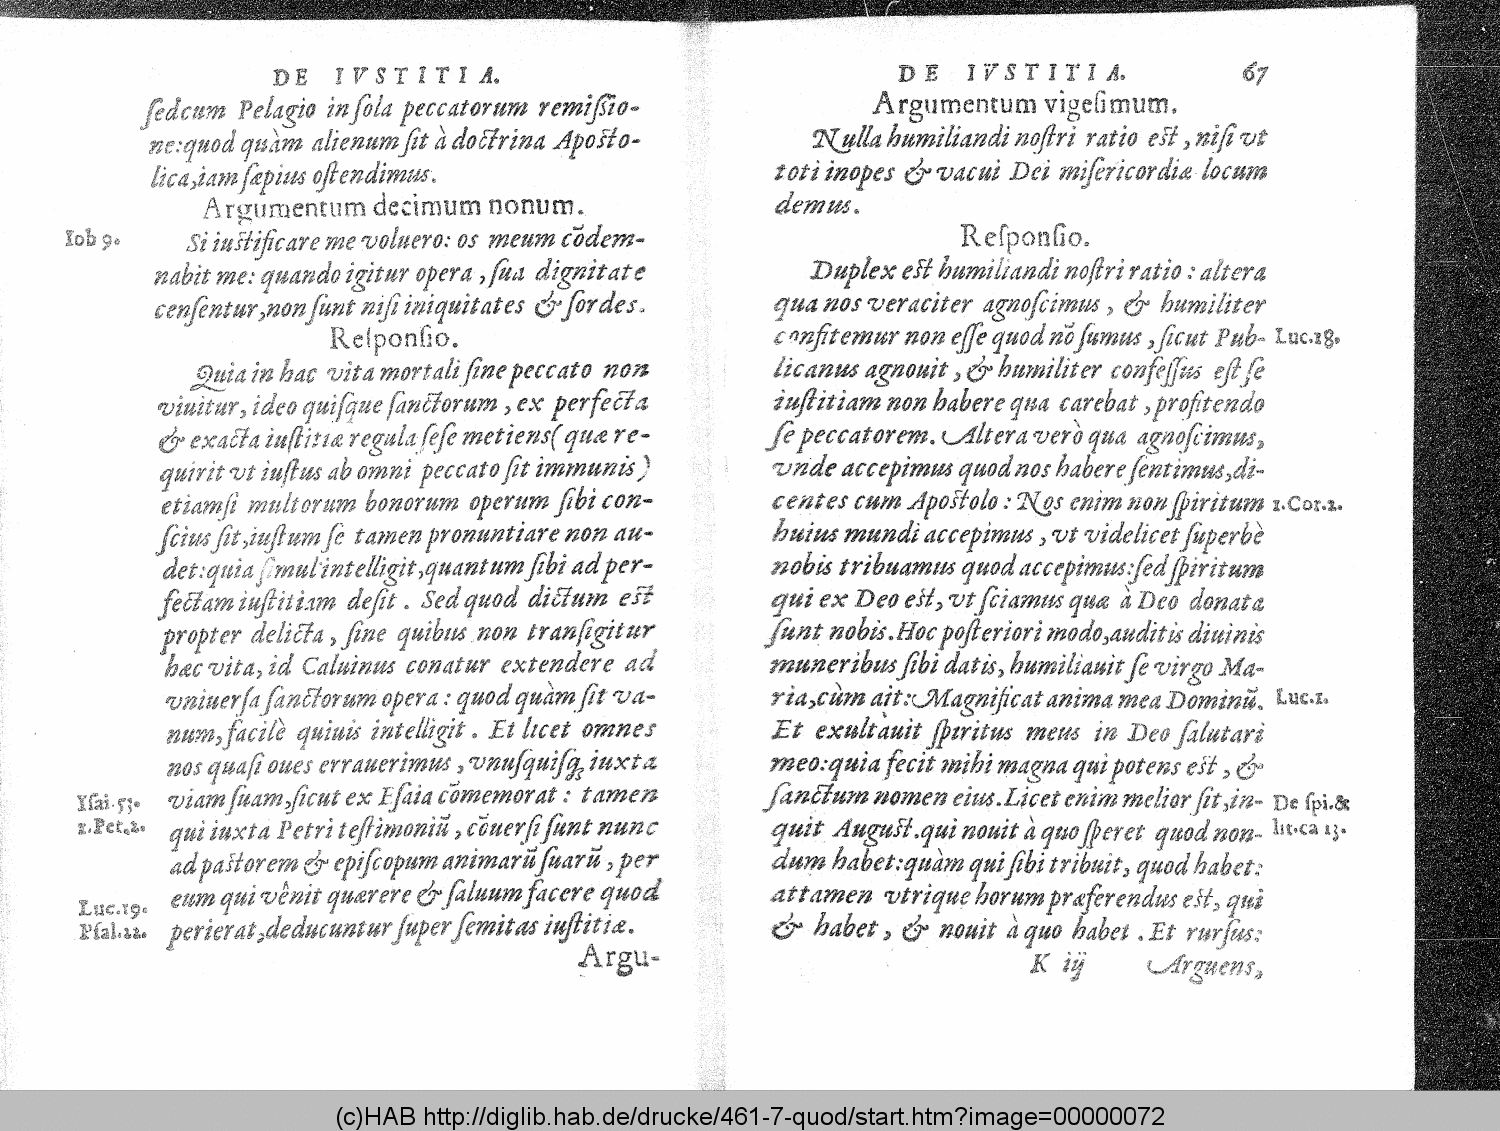 DE IVSTITIA.
ſedcum Pelagio in ſola peccatorum remiſsio-
ne:quod quàm alienum ſit à doctrina Aposto-
lica,iam ſæpius oſtendimus.
Argumentum decimum nonum.
Iob 9.
Si iustificare me voluero: os meum cōdem-
nabit me: quando igitur opera , ſua dignitate
cenſentur,non ſunt niſi iniquitates & ſordes.
Reſponſio.
Quia in hac vita mortali ſine peccato non
viuitur, ideo quiſque ſanctorum , ex perfecta
& exacta iuſtitiæ regula ſeſe metiens( quæ re-
quirit vt iuſtus ab omni peccato ſit immunis )
etiamſi multorum bonorum operum ſibi con-
ſcius ſit,iuſtum ſe tamen pronuntiare non au-
det:quia ſimul intelligit,quantum ſibi ad per-
fectam iuſtitiam deſit . Sed quod dictum est
propter delicta , ſine quibus non tranſigitur
hæc vita, id Caluinus conatur extendere ad
vniuerſa ſanctorum opera : quod quàm ſit va-
num,facilè quiuis intelligit . Et licet omnes
nos quaſi oues errauerimus , vnuſquiſq; iuxta
Iſai.53.
viam ſuam,ſicut ex Eſaia cōmemorat : tamen
1.Pet.2.
qui iuxta Petri teſtimoniū , cōuerſi ſunt nunc
ad pastorem & epiſcopum animarū ſuarū , per
eum qui vênit quærere & ſaluum facere quod
Luc.19.
perierat,deducuntur ſuper ſemitas iuſtitiæ.
Pſal.22.
Argu-
DE IVSTITIA. 67
Argumentum vigeſimum.
Nulla humiliandi noſtri ratio est , niſi vt
toti inopes & vacui Dei miſericordiæ locum
demus.
Reſponſio.
Duplex est humiliandi noſtri ratio : altera
qua nos veraciter agnoſcimus , & humiliter
confitemur non eſſe quod nō ſumus , ſicut Pub-
Luc.18.
licanus agnouit , & humiliter confeſſus eſt ſe
iuſtitiam non habere qua carebat , profitendo
ſe peccatorem. Altera verò qua agnoſcimus,
vnde accepimus quod nos habere ſentimus,di-
centes cum Apostolo : Nos enim non ſpiritum
1.Cor.2.
huius mundi accepimus , vt videlicet ſuperbè
nobis tribuamus quod accepimus:ſed ſpiritum
qui ex Deo est, vt ſciamus quæ à Deo donata
ſunt nobis.Hoc poſteriori modo,auditis diuinis
muneribus ſibi datis, humiliauit ſe virgo Ma-
ria,cùm ait: Magnificat anima mea Dominū.
Luc.1.
Et exultàuit ſpiritus meus in Deo ſalutari
meo:quia fecit mihi magna qui potens est , &
ſanctum nomen eius.Licet enim melior ſit,in-
De ſpi.&
quit August.qui nouit à quo ſperet quod non-
lit.ca 13.
dum habet:quàm qui ſibi tribuit, quod habet:
attamen vtrique horum præferendus est, qui
& habet , & nouit à quo habet . Et rurſus:
K iij Arguens,
(c)HAB http://diglib.hab.de/drucke/461-7-quod/start.htm?image=00000072